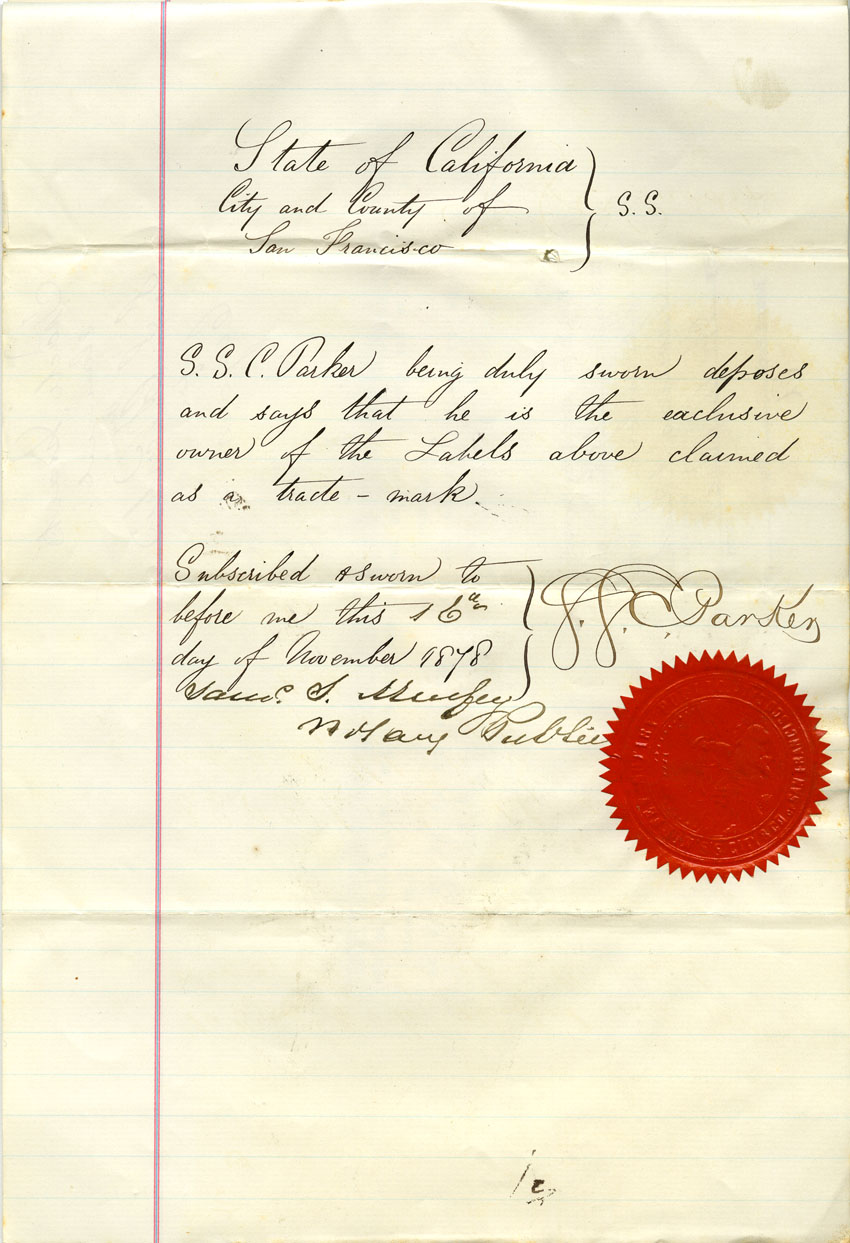 State of California
City and County of
San Francisco
S.S.
S. S. C. Parker being duly sworn deposes
and says that he is the exclusive
owner of the Labels above claimed
as a trade-mark.
Subscribed & sworn to
before me this 16th
day of November 1878
S. S. C. Parker
Saml. S. Murfey
Notary Public